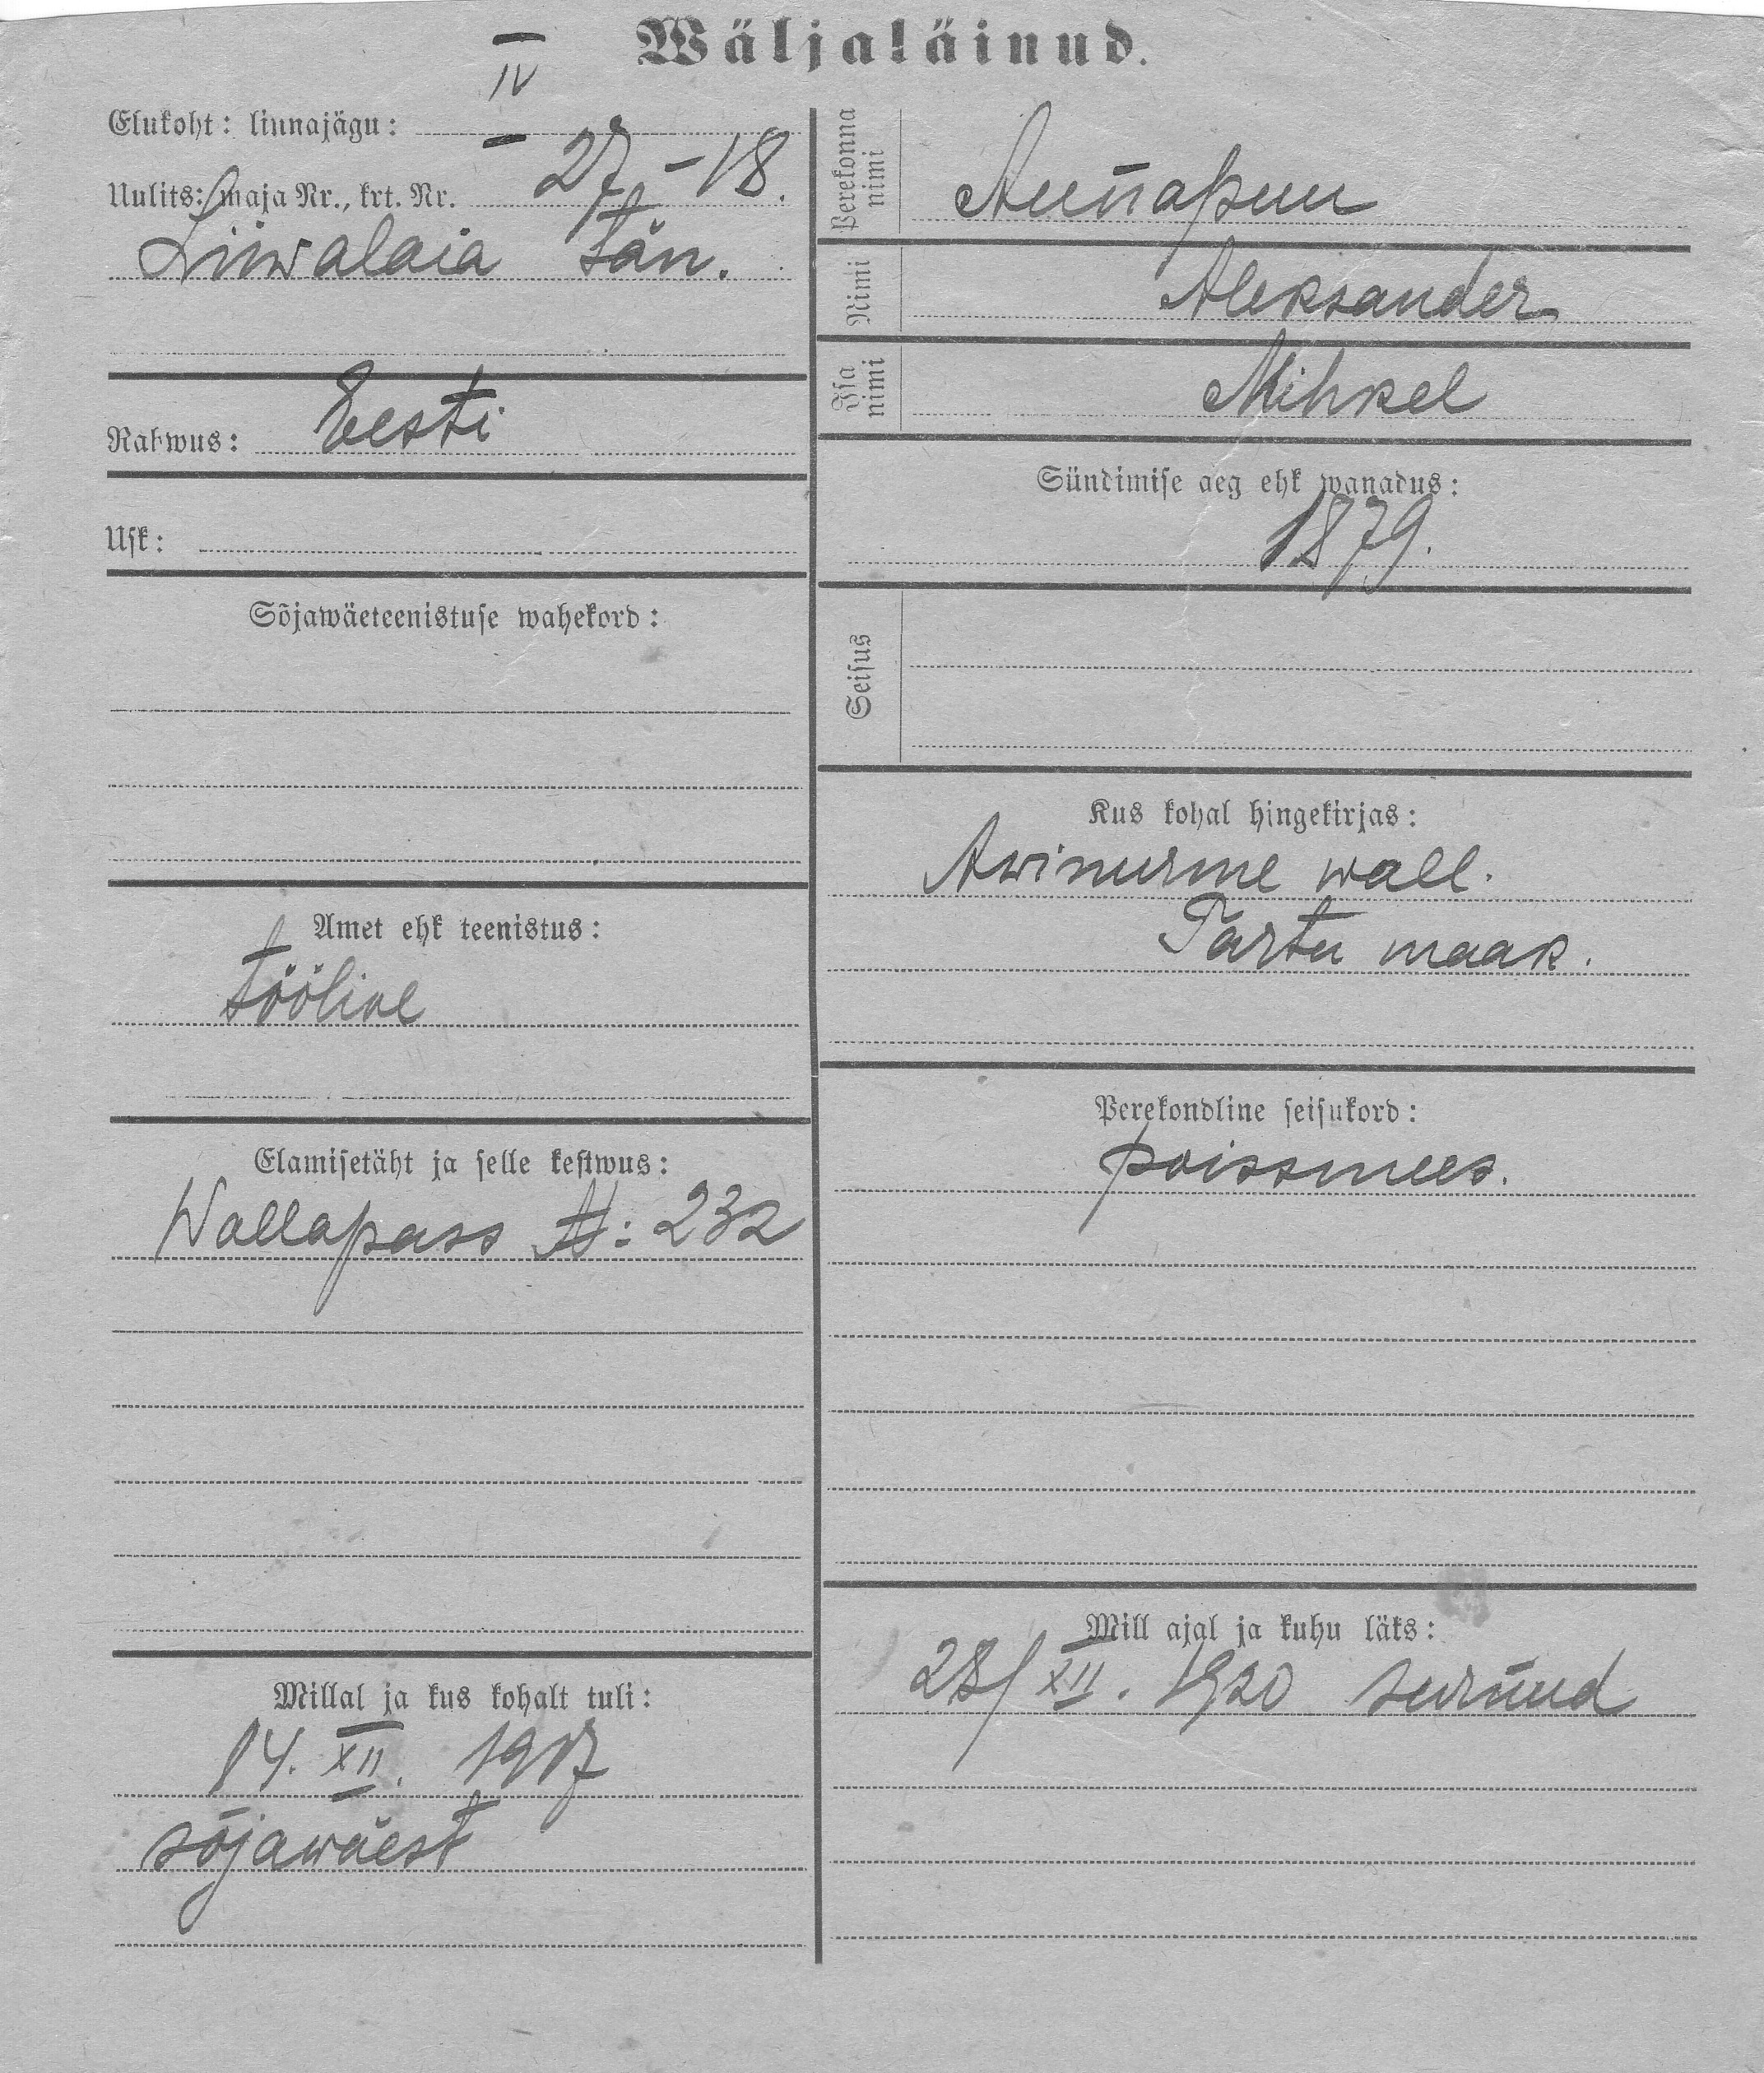 Wäljaläinud.
Elukoht: linnajägu: IV
Uulits: maja Nr., krt. Nr. 27 – 18.
Liiwalaia tän.
Rahwus: Eesti
Usk:
Sõjawäeteenistuse wahekord:
Amet ehk teenistus:
tööline
Elamisetäht ja selle kestwus:
Wallapass №: 232
Millal ja kus kohalt tuli:
14. XII. 1917
sõjawäest
Perekonna nimi
Nimi Aleksander
Isa nimi Mihkel
Sündimise aeg ehk wanadus:
1879.
Seisus
Kus kohal hingekirjas:
Awinurme wall.
Tartu maak.
Perekondline seisukord:
poissmees.
Mill ajal ja kuhu läks:
28/XII. 1920 surnud